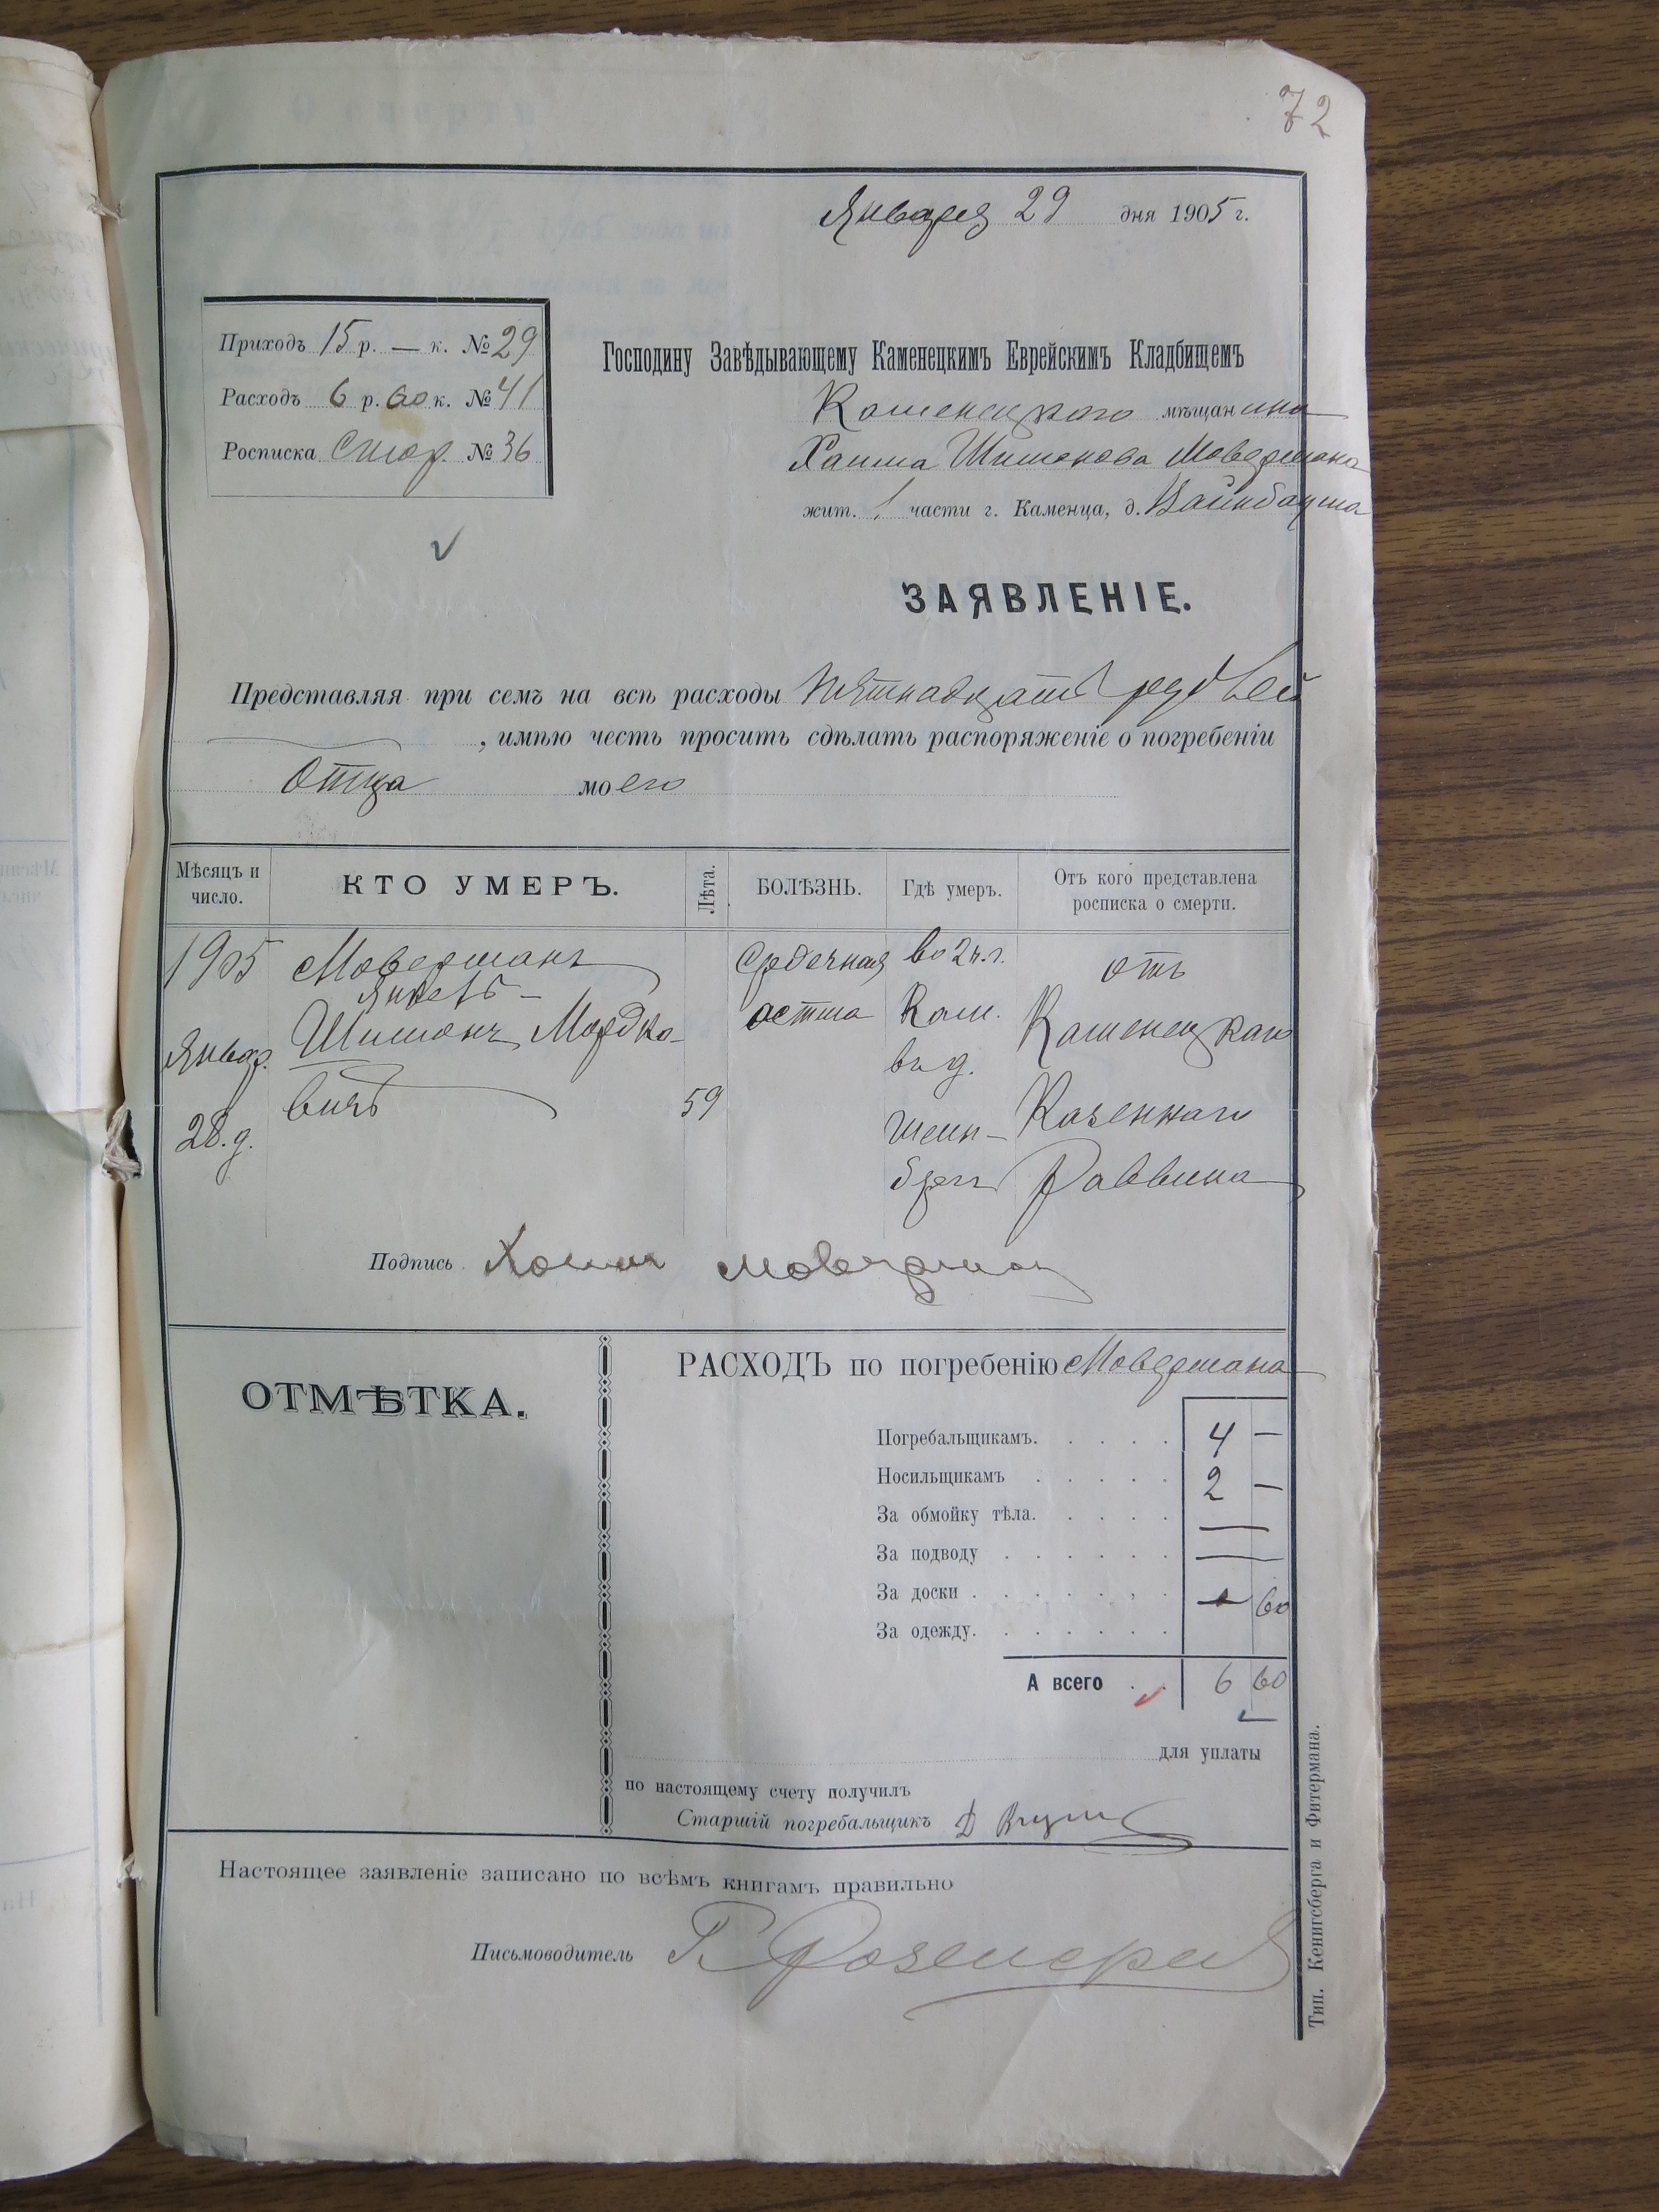 72
Января 29 дня 1905 г.
Приходъ 15 р. — к. № 29
Расходъ 6 р. 60 к. № 41
Росписка № 36
Господину Завѣдывающему Каменецкимъ Еврейскимъ Кладбищемъ
Каменецкаго мѣщанина
Хаима Шимонова Мовермана
жит. 1 части г. Каменца, д. Вайнбаума
ЗАЯВЛЕНІЕ.
Представляя при семъ на всѣ расходы пятнадцать рублей
, имѣю честь просить сдѣлать распоряженіе о погребеніи
отца моего
Мѣсяцъ и число.
КТО УМЕРЪ.
Лѣта.
БОЛѢЗНЬ.
Гдѣ умеръ.
Отъ кого представлена росписка о смерти.
1905
Январ.
28. д.
Моверманъ
Янкель-
Шимонъ Мордко-
вичъ
59
Сердечная
астма
во 2 ч. г.
Кам.
въ д.
Шейн-
берга
отъ
Каменецкаго
Казеннаго
Раввина
Подпись Хаим Моверман
ОТМѢТКА.
РАСХОДЪ по погребенію Мовермана
Погребальщикамъ. . . . . 4 —
Носильщикамъ . . . . . 2 —
За обмойку тѣла. . . . . —
За подводу . . . . . . —
За доски . . . . . . — 60
За одежду. . . . . . .
А всего . . 6 60
для уплаты
по настоящему счету получилъ
Старшій погребальщикъ
Настоящее заявленіе записано по всѣмъ книгамъ правильно
Письмоводитель
Тип. Кенигсберга и Фитермана.